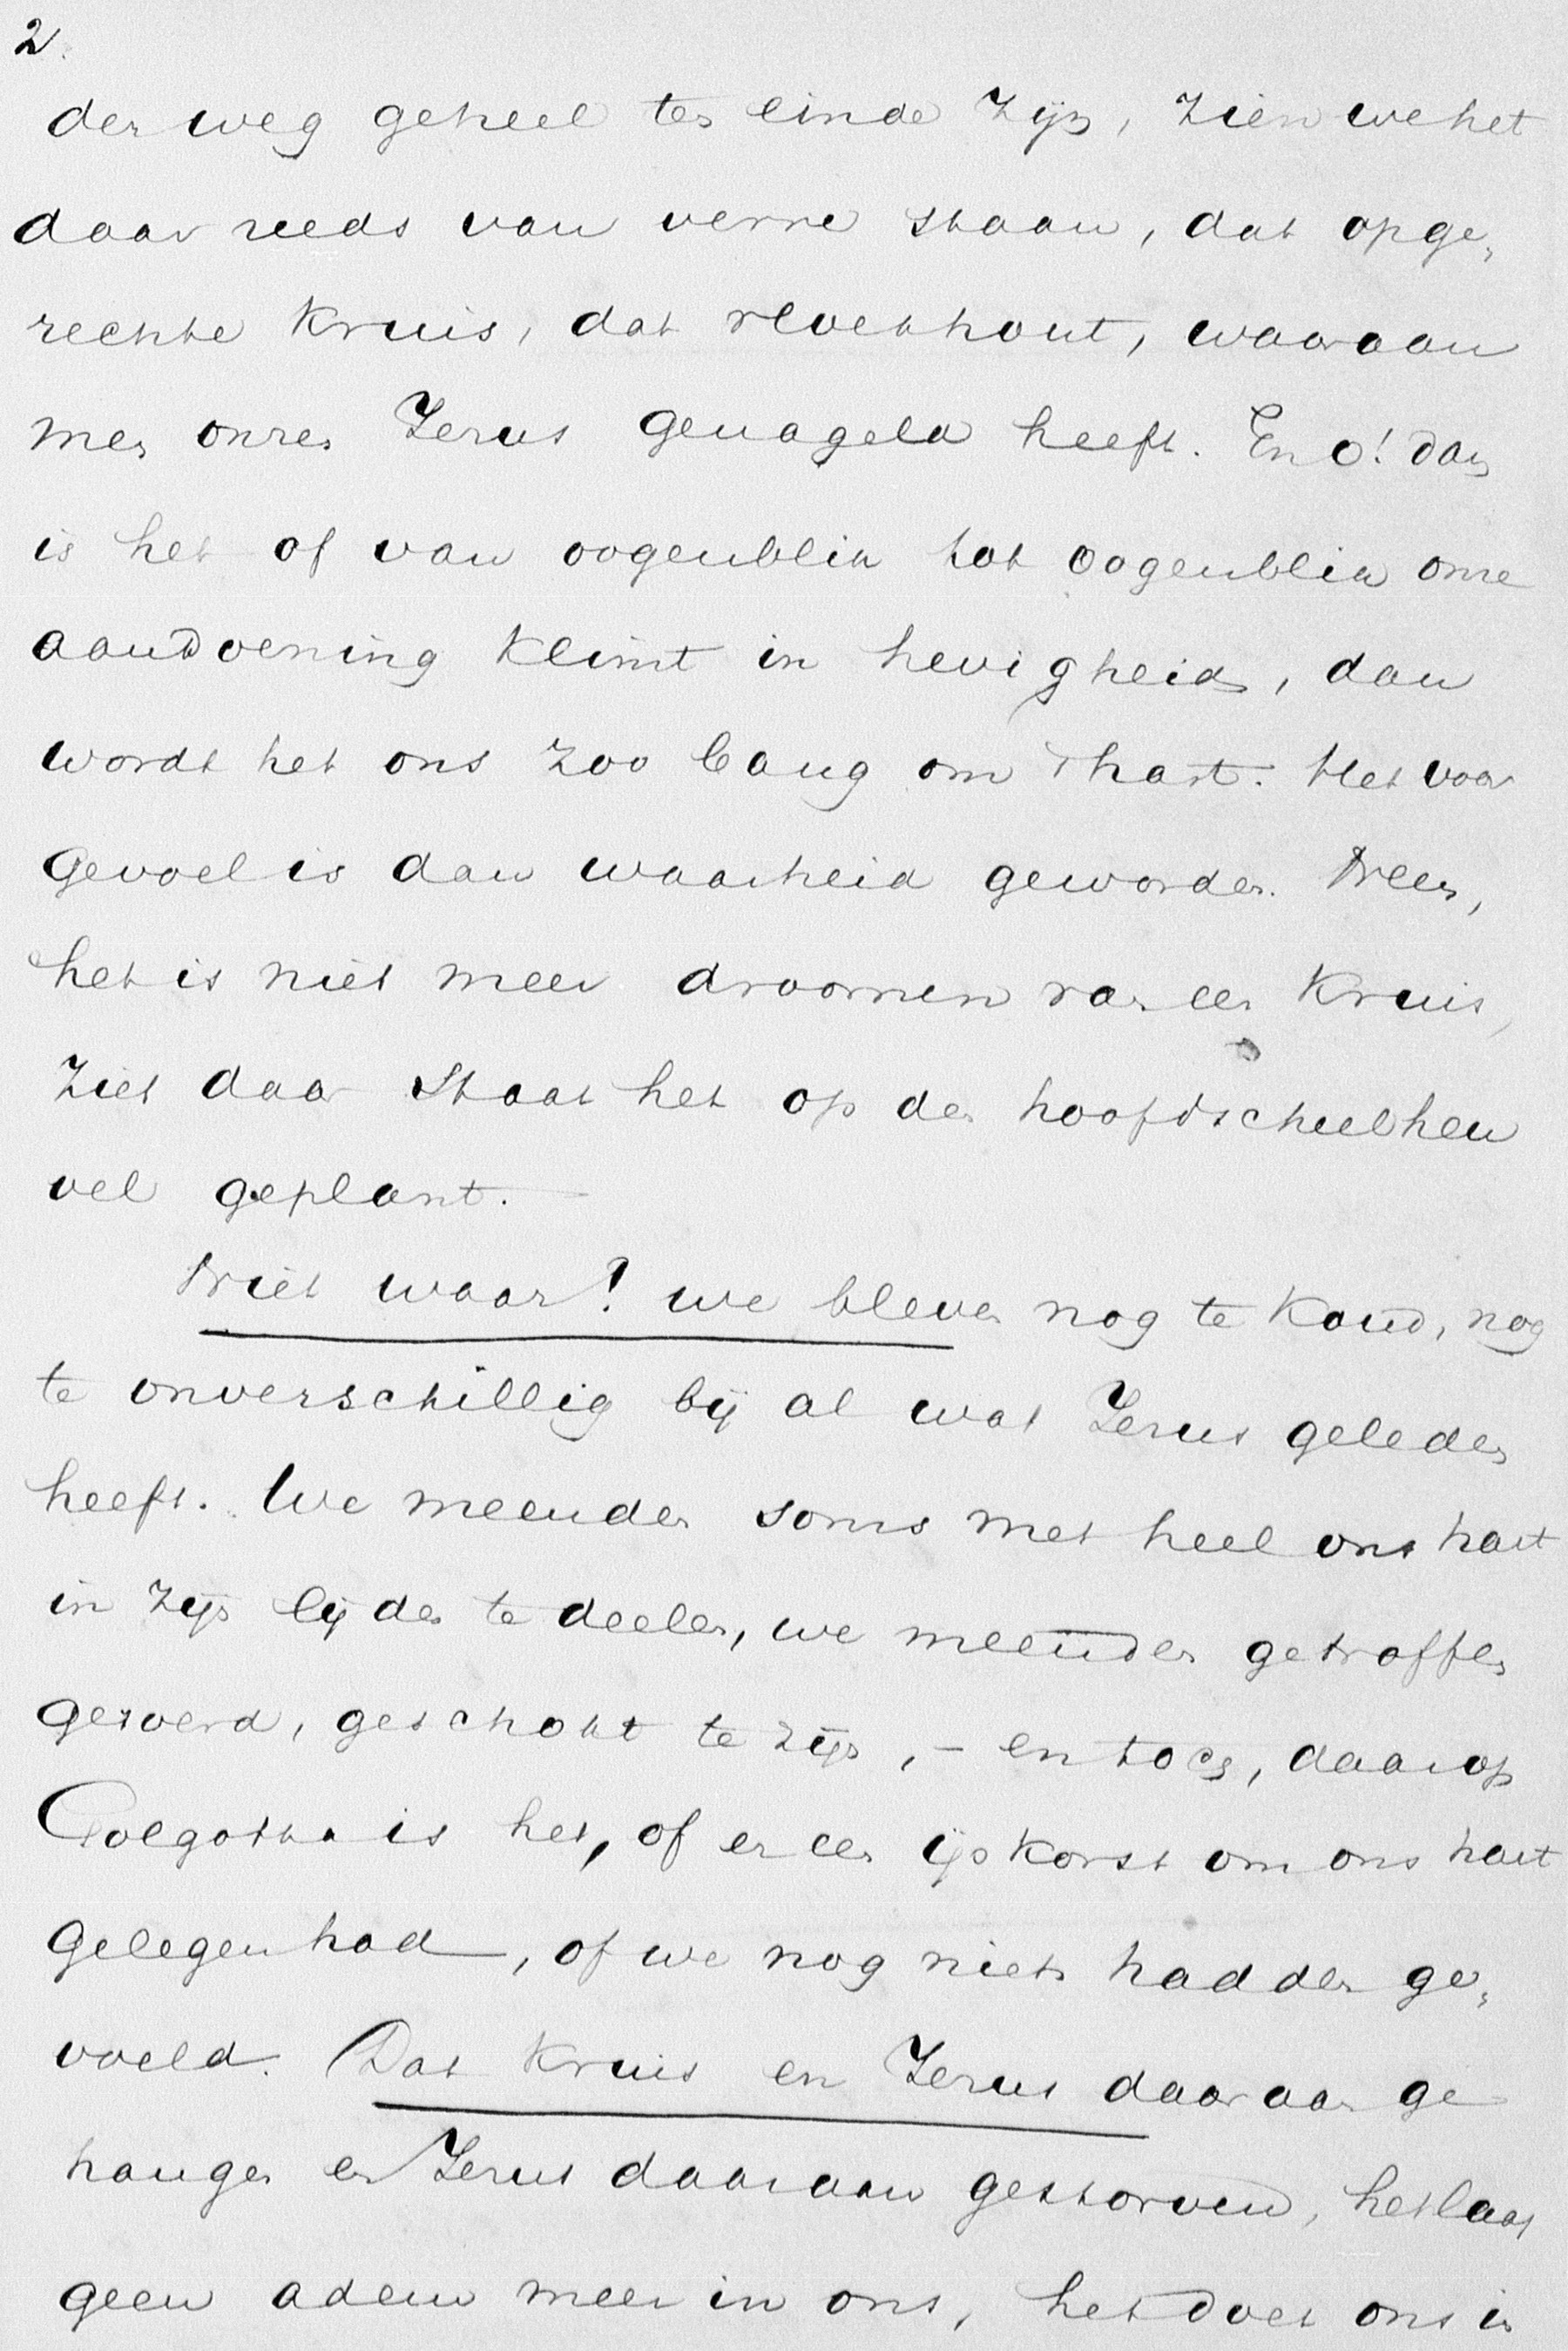 2.
den weg geheel ten einde zijn, zien we het
daar reeds van verre staan, dat opge„
rechte kruis, dat vloekhout, waaraan
men onzen Jezus genageld heeft. En o! dan
is het of van oogenblik tot oogenblik onze
aandoening klimt in hevigheid, dan
wordt het ons zoo bang om 't hart. Het voor
gevoel is dan waarheid geworden. Neen,
het is niet meer droomen van een kruis,
ziet daar staat het op den hoofdscheelheu
vel geplant.
Niet waar! we bleven nog te koud, nog
te onverschillig bij al wat Jezus geleden
heeft. We meenden soms met heel ons hart
in zijn lijden te deelen, we meenden getroffen
geroerd, geschokt te zijn, - en toch, daar op
Golgotha is het, of er een ijskorst om ons hart
gelegen had, of we nog niets hadden ge„
voeld. Dat kruis en Jezus daaraan ge
hangen en Jezus daaraan gestorven, het laat
geen adem meer in ons, het doet ons in